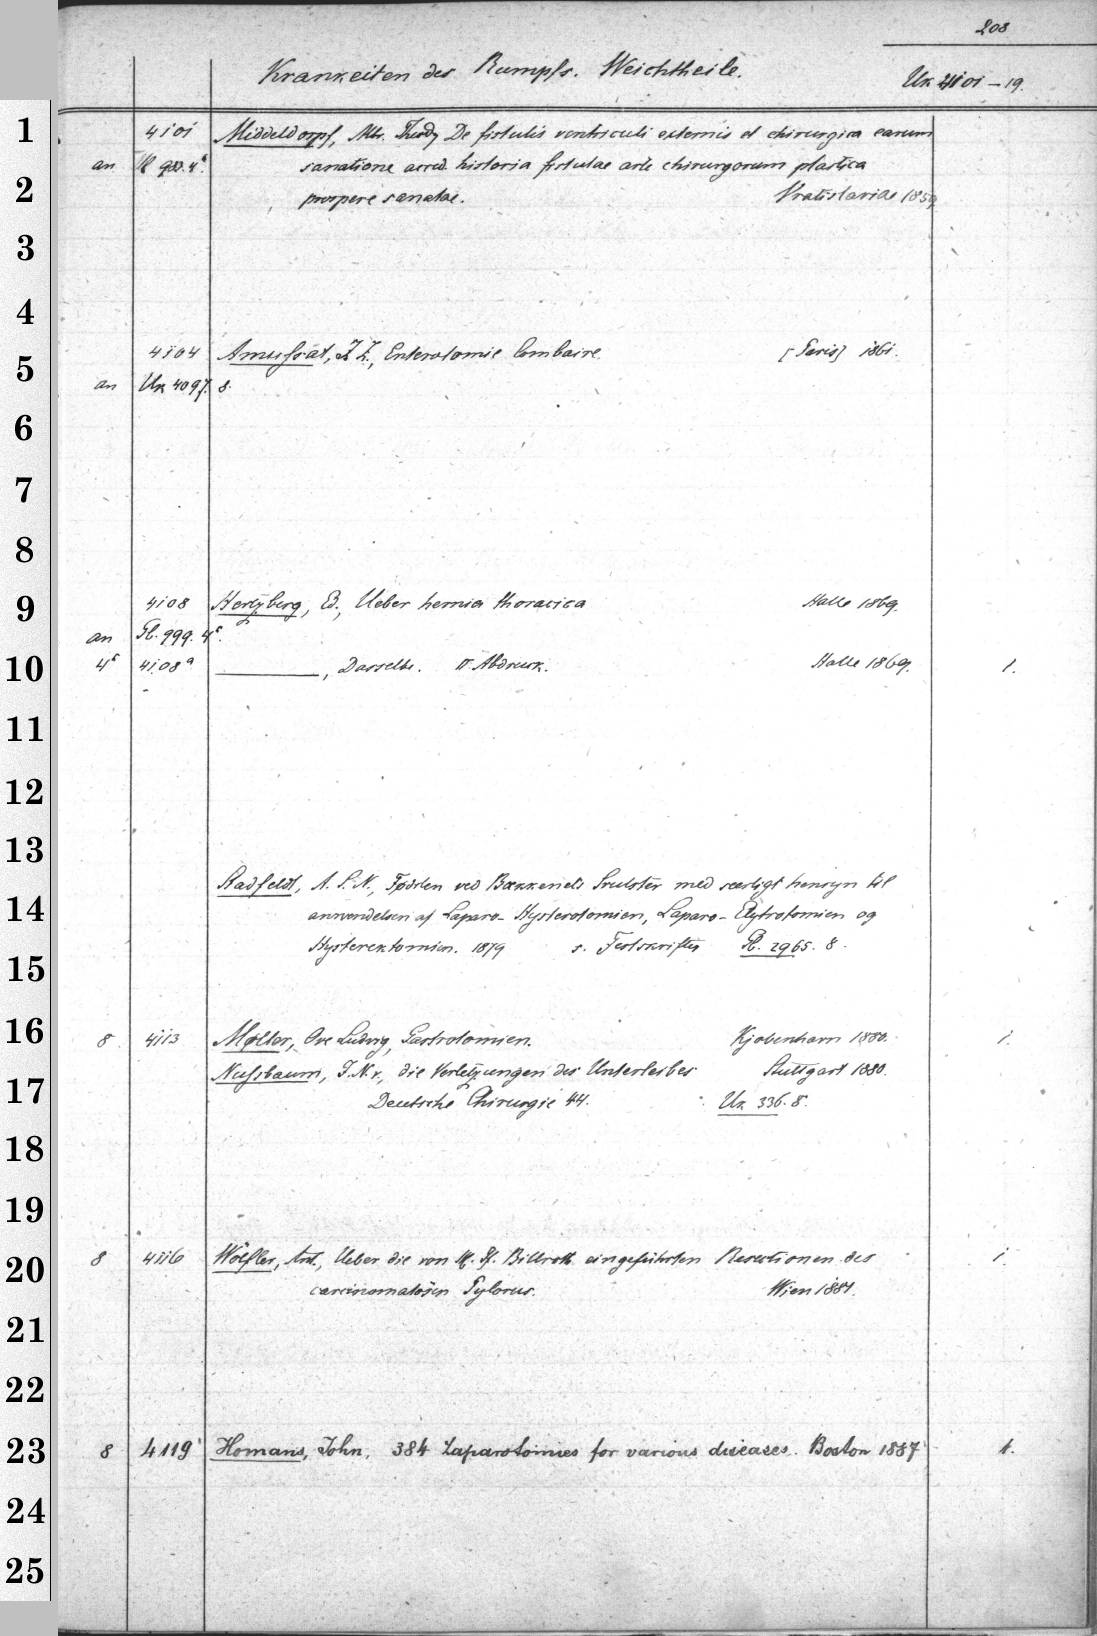 208
Krankeiten des Rumpfs. Weichtheile.
Uk 4101-19.
4101 Middeldorpf, Alb. Theod, De fistulis ventriculi externis et chirurgica earum
an 4°. sanatione acced. historia fistulae arte chirurgorum plastica
prospere sanatae. Vratislaviae 1859
4104 Amussat, Enterotomie lombaire [Paris] 1861.
an Uk 4097. 8.
4108 Hertzberg, Ed., Ueber hernia thoracica Halle 1869.
an 999. 4°.
4° 4108a ———, Dasselbe. II Abdruck. Halle 1869. 1.
Stadfeldt, A. S. N., Fødslen ved Bækkenets Svulster med særligt hensyn til
anvendelsen af Laparo-Hysterotomien, Laparo-Elytrotomien og
Hysterektomien. 1879 s. Festskrifter 2965. 8.
8 4113 Møller, Ove Ludvig, Gastrotomien. Kjøbenhavn 1880. 1.
Nussbaum, J. N. v., die Verletzungen des Unterleibes Stuttgart 1880.
Deutsche Chirurgie 44. Uk 336. 8.
8 4116 Wölfler, Ant., Ueber die von H. Pf. Billroth eingeführten Resectionen des 1.
carcinomatösen Pylorus. Wien 1881.
8 4119 Homans, John, 384 Laparotomies for various diseases. Boston 1887 1.
1
2
3
4
5
6
7
8
9
10
11
12
13
14
15
16
17
18
19
20
21
22
23
24
25